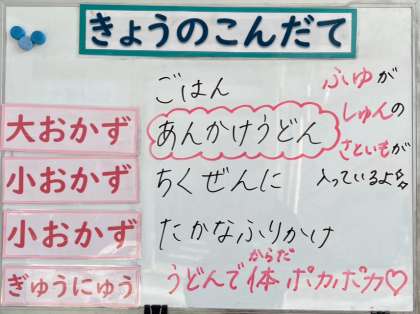 きょうのこんだて
ごはん
大おかず
あんかけうどん
小おかず
ちくぜんに
小おかず
たかなふりかけ
ぎゅうにゅう
ふゆが
しゅんの
さといもが
入っているよ
からだ
うどんで体ポカポカ♡